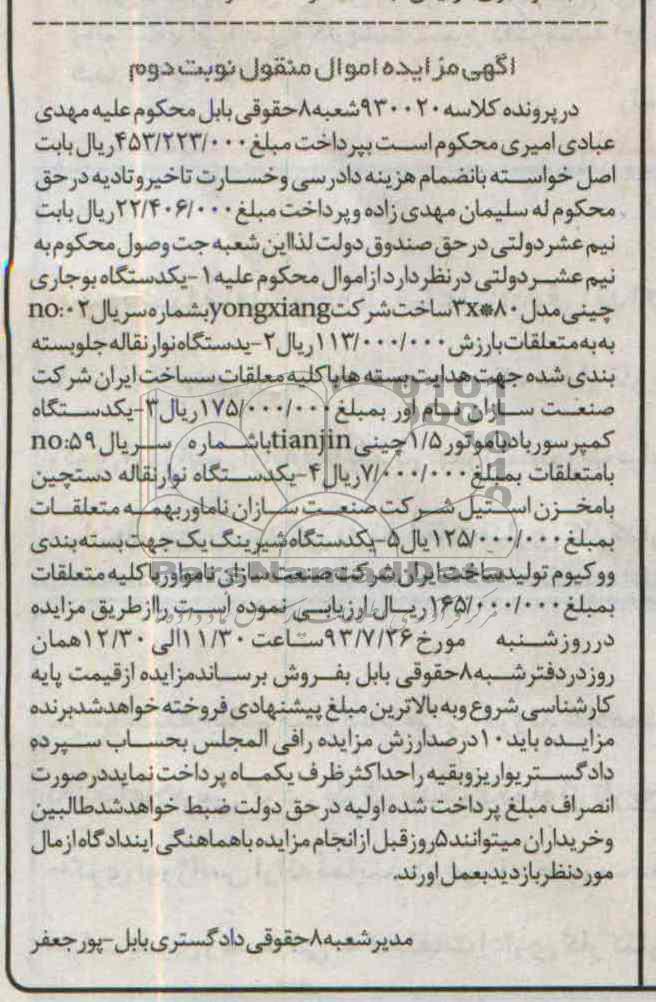 اگهی مزایده اموال منقول نوبت دوم
در پرونده کلاسه ۹۳۰۰۲۰ شعبه ۸ حقوقی بابل محکوم علیه مهدی
عبادی امیری محکوم است بپرداخت مبلغ ۴۵۳/۲۲۳/۰۰۰ ریال بابت
اصل خواسته بانضمام هزینه دادرسی و خسارت تاخیر و تادیه در حق
محکوم له سلیمان مهدی زاده و پرداخت مبلغ ۲۲/۴۰۶/۰۰۰ ریال بابت
نیم عشر دولتی در حق صندوق دولت لذا این شعبه جت وصول محکوم به
نیم عشر دولتی در نظر دارد از اموال محکوم علیه ۱- یکدستگاه بوجاری
چینی مدل ۸۰*۳x ساخت شرکت yongxiang بشماره سریال no:۰۲
به به متعلقات بارزش ۱۱۳/۰۰۰/۰۰۰ ریال ۲- یدستگاه نوار نقاله جلو بسته
بندی شده جهت هدایت بسته ها با کلیه معلقات سساخت ایران شرکت
صنعت سازان نام اور بمبلغ ۱۷۵/۰۰۰/۰۰۰ ریال ۳- یکدستگاه
کمپرسور باد با موتور ۱/۵ چینی tianjin باشماره سریال no:۵۹
با متعلقات بمبلغ ۷/۰۰۰/۰۰۰ ریال ۴- یکدستگاه نوار نقاله دستچین
با مخزن استیل شرکت صنعت سازان ناماور بهمه متعلقات
بمبلغ ۱۲۵/۰۰۰/۰۰۰ یال ۵- یکدستگاه شیرینگ یک جهت بسته بندی
وو کیوم تولید ساخت ایران شرکت صنعت سازان نامواور با کلیه متعلقات
بمبلغ ۱۶۵/۰۰۰/۰۰۰ ریال ارزیابی نموده است را از طریق مزایده
در روز شنبه مورخ ۹۳/۷/۲۶ ساعت ۱۱/۳۰ الی ۱۲/۳۰ همان
روز در دفتر شبه ۸ حقوقی بابل بفروش برساند مزایده از قیمت پایه
کارشناسی شروع و به بالاترین مبلغ پیشنهادی فروخته خواهد شد برنده
مزایده باید ۱۰ درصد ارزش مزایده رافی المجلس بحساب سپرده
دادگستر یواریز و بقیه را حداکثر ظرف یکماه پرداخت نماید در صورت
انصراف مبلغ پرداخت شده اولیه در حق دولت ضبط خواهد شد طالبین
و خریداران میتوانند ۵ روز قبل از انجام مزایده با هماهنگی ایندادگاه از مال
مورد نظر بازدید بعمل اورند.
مدیر شعبه ۸ حقوقی دادگستری بابل - پور جعفر
ParsNamadData